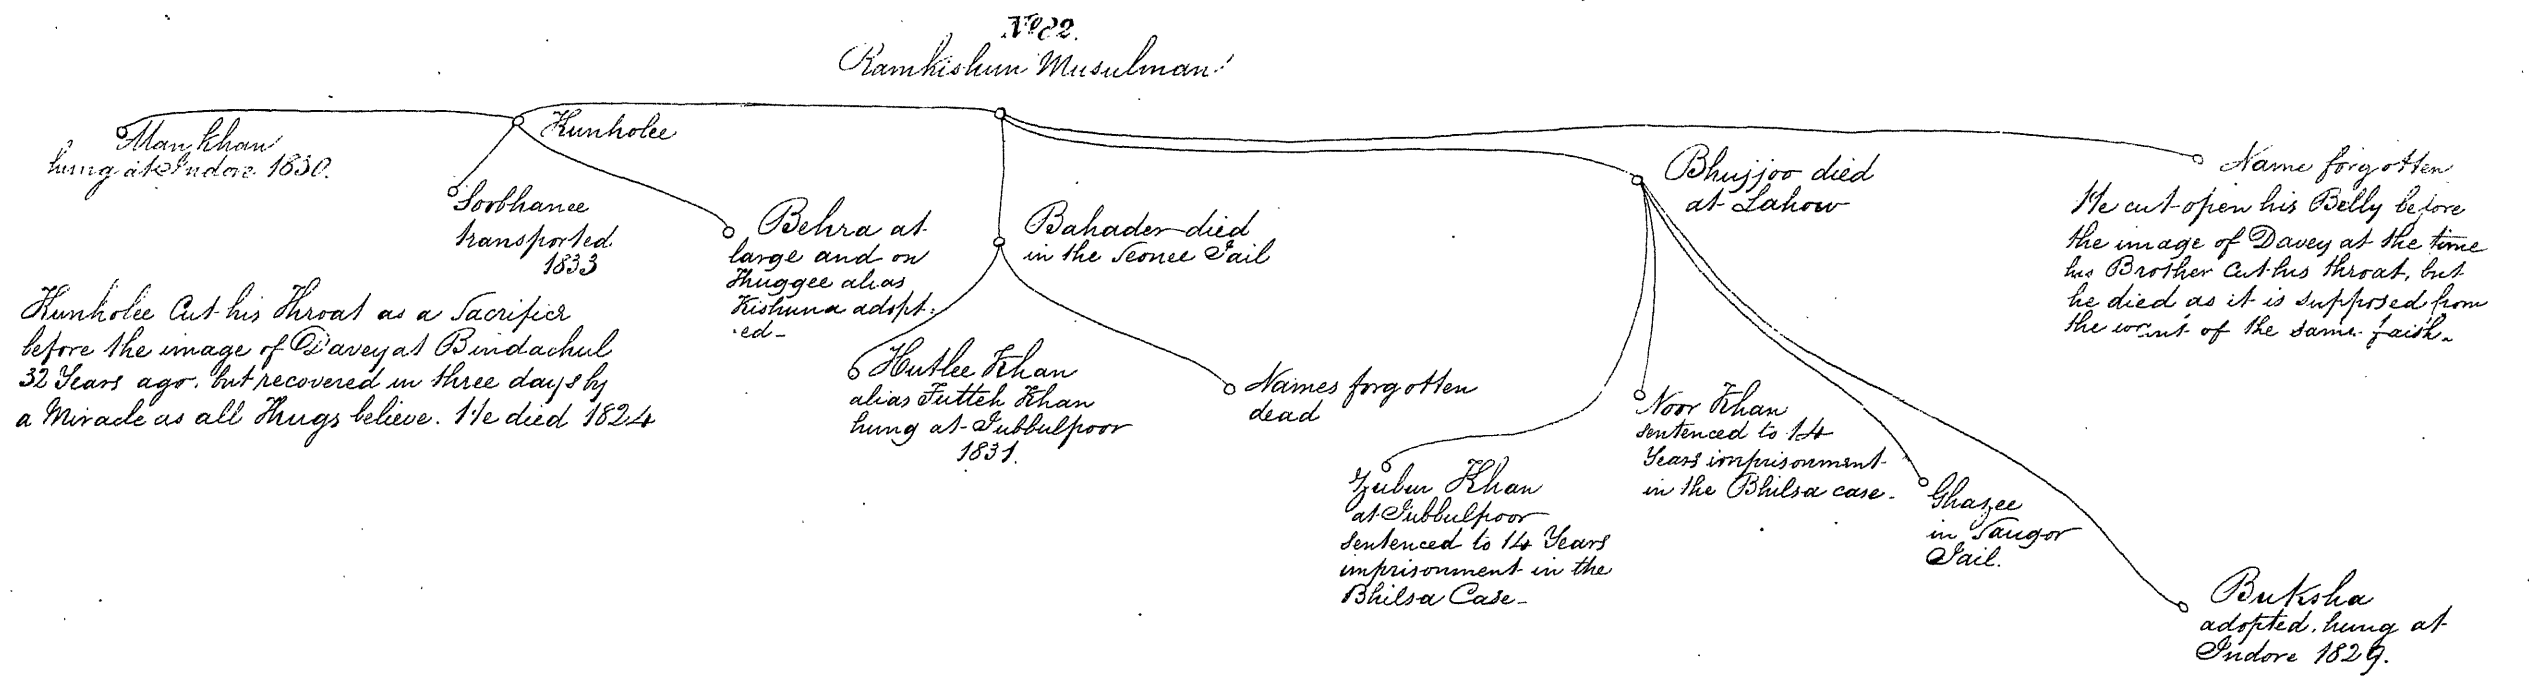 No 22.
Ramkishun Musulman
Man khan
hung at Indore 1830.
Kunholee
Sorbhanee
transported
1833
Behra at
large and on
Thuggee alias
Kishuna adopt
ed-
Kunholee Cut his Throat as a Sacrifice
before the image of Davey at Bindachul
32 Years ago, but recovered in three days by
a Miracle as all Thugs believe. He died 1824
Bahader died
in the Seonee Jail
Hutlee Khan
alias Futteh Khan
hung at Jubbulpoor
1831.
Names forgotten
dead
Bhujjoo died
at Lahow
Khan
at Jubbulpoor
sentenced to 14 Years
imprisonment in the
Bhilsa Case-
Noor Khan
sentenced to 14
Years imprisonment
in the Bhilsa case-
Ghazee
in Saugor
Jail.
Buksha
adopted, hung at
Indore 1829.
Name forgotten
He cut open his Belly before
the image of Davey at the time
his Brother Cut his throat, but
he died as it is supposed from
the want of the same faith.